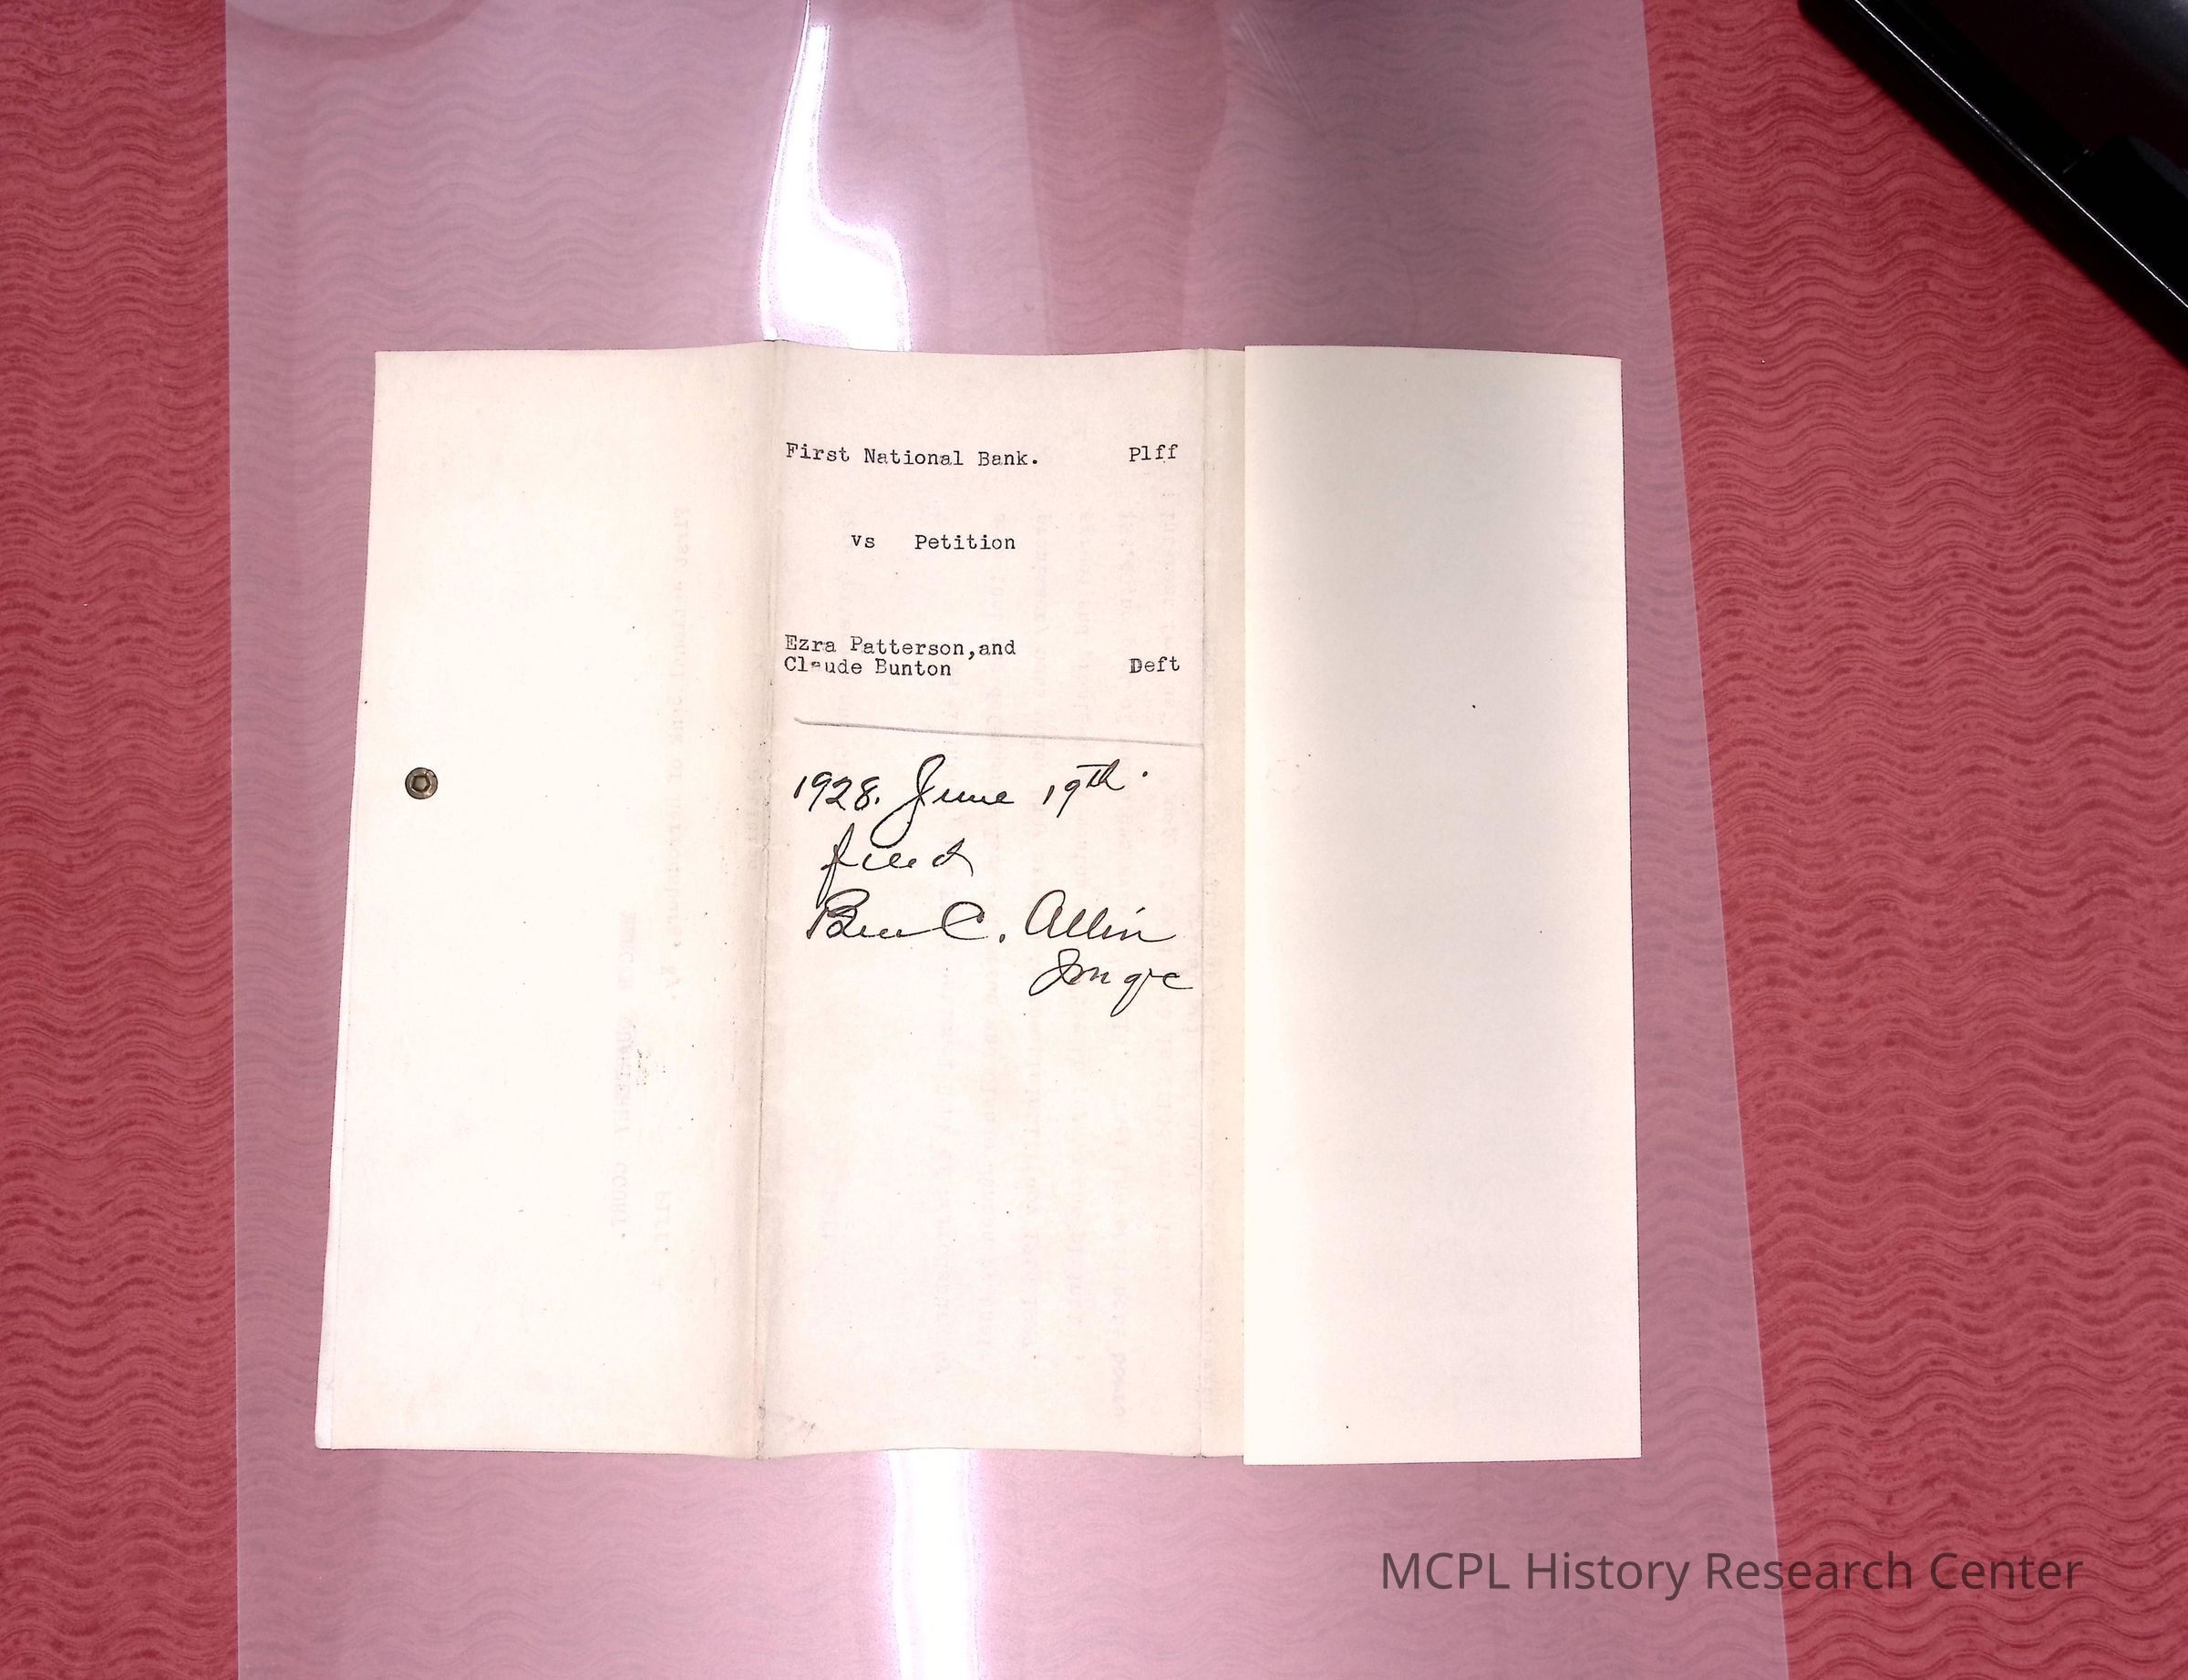 First National Bank. Plff
vs Petition
Ezra Patterson,and
Claude Bunton Deft
1928. June 19th.
filed
Ben C. Allin
MCPL History Research Center